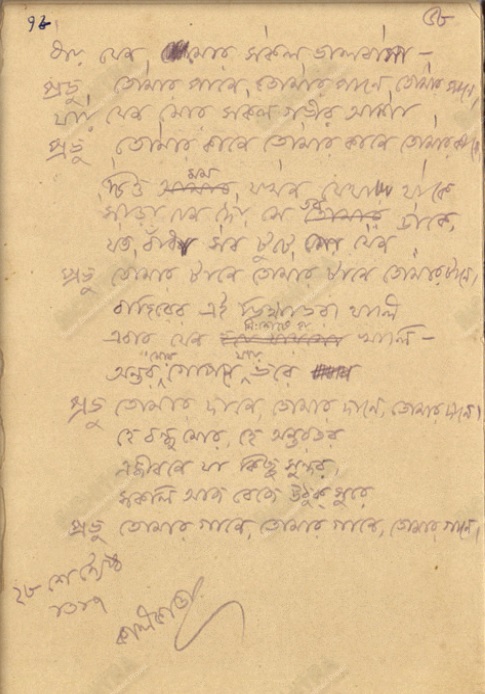 ৭৮ ৫৮
ধায় যেন মোর সকল ভালবাসা –
প্রভু তোমার পানে, তোমার পানে, তোমার পানে,
যায় যেন মোর সকল গভীর আশা
প্রভু তোমার কানে তোমার কানে তোমার কানে
মম
চিত্ত আমার যখন যেথায় থাকে
সাড়া যেন দেয় সে তোমার ডাকে,
যত বাঁধন সব টুটে যেন
প্রভু তোমার টানে তোমার টানে তোমার টানে,
বাহিরের এই ভিক্ষাভরা থালি
নিঃশেষে হয়
এবার যেন খালি –
মোর যায়
অন্তর গোপনে ভরে
প্রভু তোমার দানে, তোমার দানে, তোমার দানে।
হে বন্ধু মোর, হে অন্তরতর
এ জীবনে যা কিছু সুন্দর,
সকলি আজ বেজে উঠুক সুরে
প্রভু তোমার গানে, তোমার গানে, তোমার গানে,
২৮শে জ্যৈষ্ঠ
১৩১৭
কলিকাতা